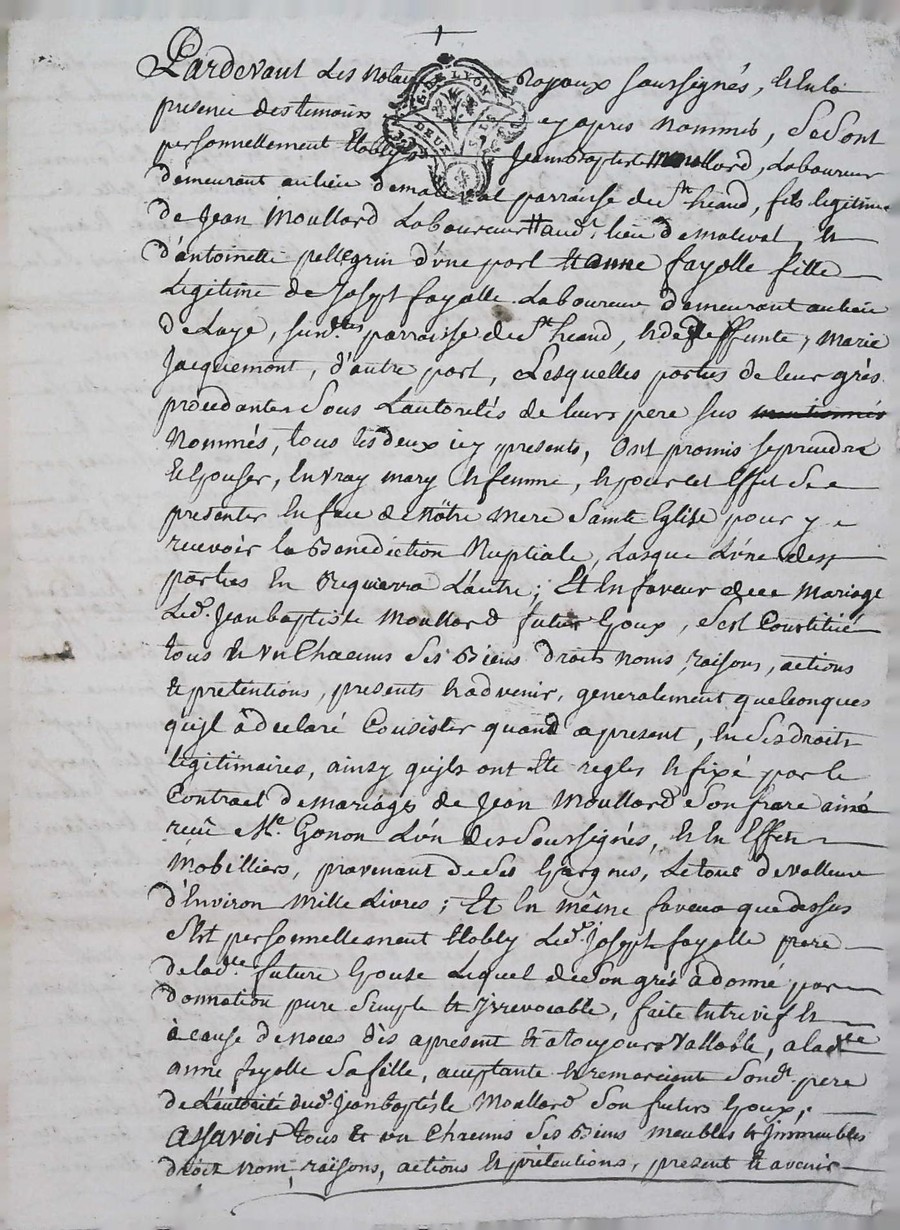 Pardevant Les Notai Royaux soussignés, et en la
presence des temoins cy apres nommés, se sont
personnellement Etablys Jean baptiste Moullard, Laboureur
demeurant au lieu de mal al parroisse de St heand, fils legitime
de Jean Moullard Laboureur aud. lieu de malval, et
d'antoinette pellegrin d'vne part et anne fayolle fille
Legitime de Joseph fayolle Laboureur demeurant au lieu
de Laye, susd.te parroisse de St heand, et de deffunte, Marie
Jacquemont, d'autre part, Lesquelles parties de leur grés
procedantes sous L'autorités de leurs pere sus mentionnés
Nommés, tous les deux icy presents, ont promis se prendre
et Epouser, en vray mary et femme, et pour cet Effet se
presenter en face de Nôtre mere sainte Eglise pour y
recevoir la Benediction Nuptiale, Lasque L'vne des
parties en Requerra L'autre; Et en faveur de ce Mariage
Led. Jean baptiste Moullard futur Epoux, s'est Constitué
tous et vn Chacuns ses Biens droits noms, raisons, actions
et prétentions, presents et advenir, generalement quelconques
qu'jl à declaré Consister quand a present, en ses droits
légitimaires, ainsy qu'jls ont été regles et fixé par le
Contract de mariage de Jean Moullard son frere ainé
reçû Me. Gonon L'vn des soussignés, et en Effets
Mobilliers, provenant de ses Epargnes, Le tout de valleur
d'Environ Mille Livres; Et en même faveur que dessus
s'Est personnellement Etably Led. Joseph fayolle pere
de lad.te future Epouse Lequel de son grés à donné par
donnation pure simple et jrrevocable, faite entre vif et
à cause de noces dès apresent et a toujours Vallable, a lad.te
anne fayolle sa fille, acceptante et remerciente sond. pere
de L'autorité dud. Jean baptiste Moullard son futur Epoux,
assavoir tous et vn Chacuns ses Biens meubles et jmmeubles
droit nom, raisons, actions et prétentions, present et avenir